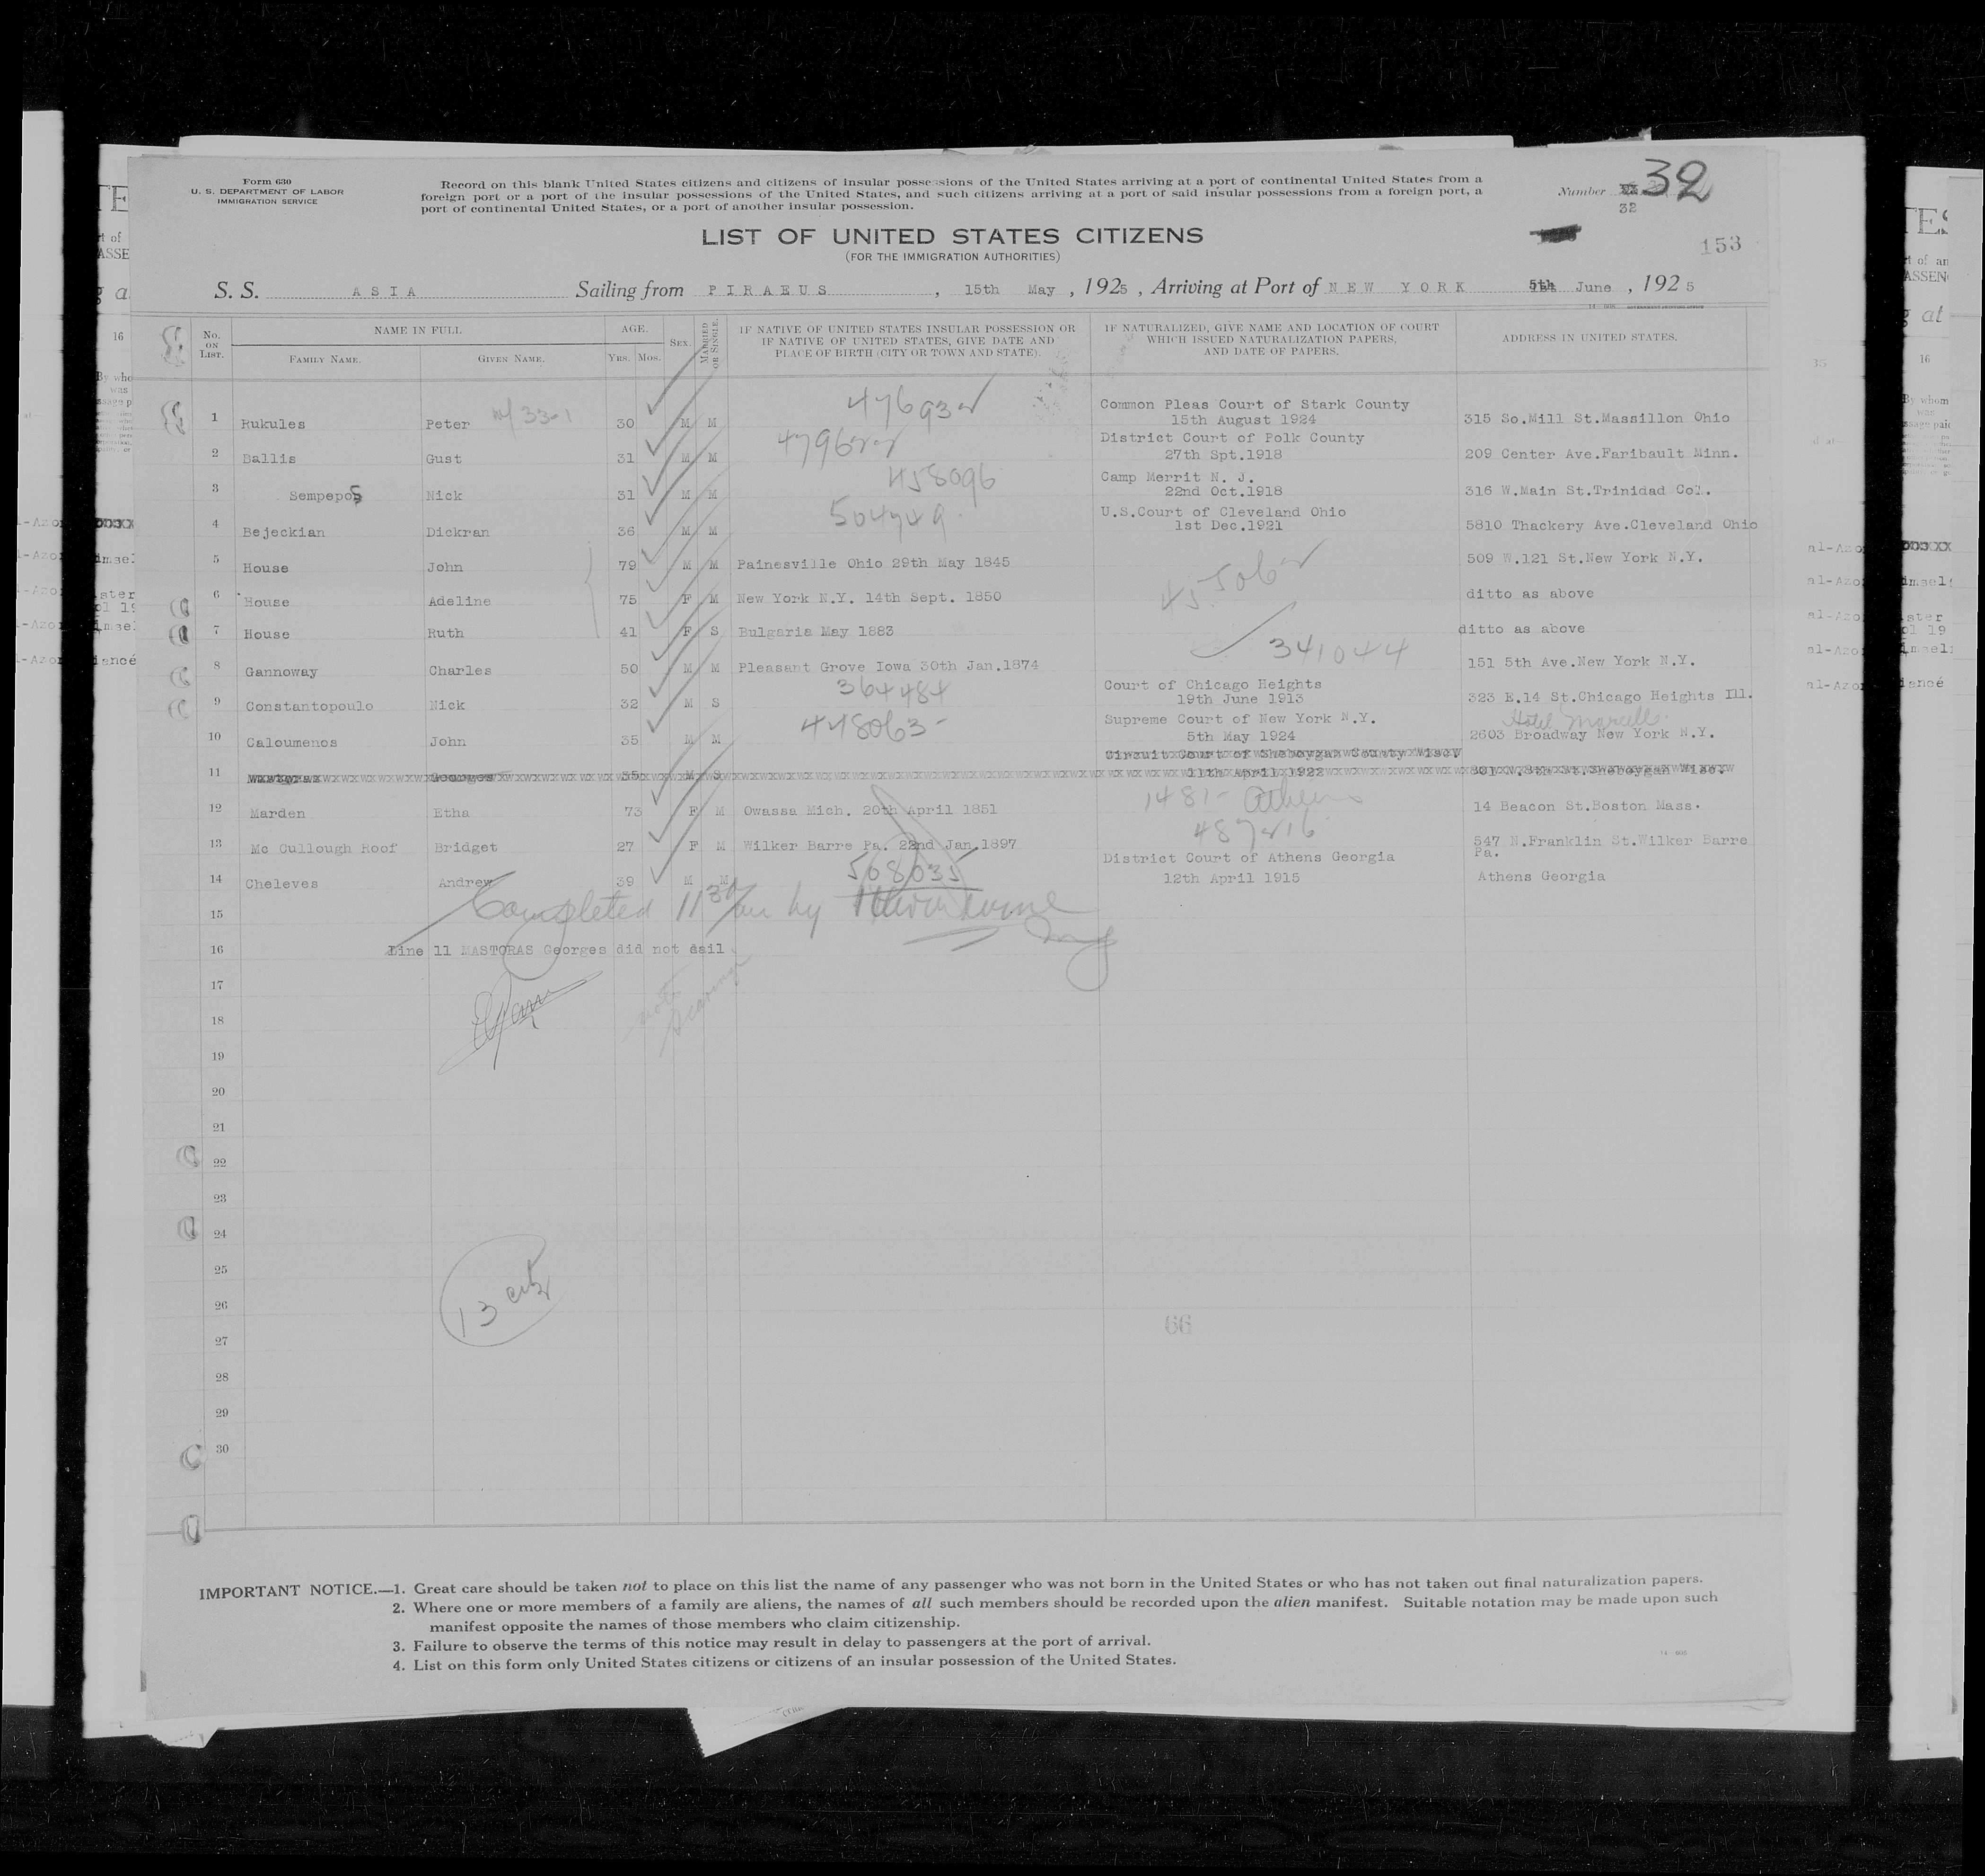 Form 630
U. S. DEPARTMENT OF LABOR
IMMIGRATION SERVICE
Record on this blank United States citizens and citizens of insular possessions of the United States arriving at a port of continental United States from a
foreign port or a port of the insular possessions of the United States, and such citizens arriving at a port of said insular possessions from a foreign port, a
port of continental United States, or a port of another insular possession.
Number 32
32
LIST OF UNITED STATES CITIZENS
(FOR THE IMMIGRATION AUTHORITIES)
153
S. S. ASIA Sailing from PIRAEUS, 15th May, 1925, Arriving at Port of NEW YORK 5th June, 1925
No. ON LIST. NAME IN FULL FAMILY NAME. GIVEN NAME. AGE. YRS. MOS. SEX. MARRIED OR SINGLE. IF NATIVE OF UNITED STATES INSULAR POSSESSION OR IF NATIVE OF UNITED STATES, GIVE DATE AND PLACE OF BIRTH (CITY OR TOWN AND STATE). IF NATURALIZED, GIVE NAME AND LOCATION OF COURT WHICH ISSUED NATURALIZATION PAPERS, AND DATE OF PAPERS. ADDRESS IN UNITED STATES.
1 Rukules Peter 30 M M Common Pleas Court of Stark County 15th August 1924 315 So.Mill St.Massillon Ohio
2 Ballis Gust 31 M M District Court of Polk County 27th Spt.1918 209 Center Ave.Faribault Minn.
3 Sempepos Nick 31 M M 458096 Camp Merrit N. J. 22nd Oct.1918 316 W.Main St.Trinidad Col.
4 Bejeckian Dickran 36 M M 504749 U.S.Court of Cleveland Ohio 1st Dec.1921 5810 Thackery Ave.Cleveland Ohio
5 House John 79 M M Painesville Ohio 29th May 1845 509 W.121 St.New York N.Y.
6 House Adeline 75 F M New York N.Y. 14th Sept. 1850 ditto as above
7 House Ruth 41 F S Bulgaria May 1883 ditto as above
8 Gannoway Charles 50 M M Pleasant Grove Iowa 30th Jan.1874 341044 151 5th Ave.New York N.Y.
9 Constantopoulo Nick 32 M S 364484 Court of Chicago Heights 19th June 1913 323 E.14 St.Chicago Heights Ill.
10 Caloumenos John 35 M M 448063- Supreme Court of New York N.Y. 5th May 1924 Hotel 2603 Broadway New York N.Y.
11 Mastoras Georges 35 M S Circuit Court of Sheboygan County Wisc. 11th April 1922 801 N. 8th St.Sheboygan Wisc.
12 Marden Etha 73 F M Owassa Mich. 20th April 1851 1481- Athens 14 Beacon St.Boston Mass.
13 Mc Cullough Roof Bridget 27 F M Wilker Barre Pa. 22nd Jan.1897 547 N.Franklin St.Wilker Barre Pa.
14 Cheleves Andrew 39 M M 508035 District Court of Athens Georgia 12th April 1915 Athens Georgia
15 Completed 11 30 am by
16 Line 11 MASTORAS Georges did not sail
17
18
19
20
21
22
23
24
25
26
27
28
29
30
13
66
IMPORTANT NOTICE.—1. Great care should be taken not to place on this list the name of any passenger who was not born in the United States or who has not taken out final naturalization papers.
2. Where one or more members of a family are aliens, the names of all such members should be recorded upon the alien manifest. Suitable notation may be made upon such
manifest opposite the names of those members who claim citizenship.
3. Failure to observe the terms of this notice may result in delay to passengers at the port of arrival.
4. List on this form only United States citizens or citizens of an insular possession of the United States.